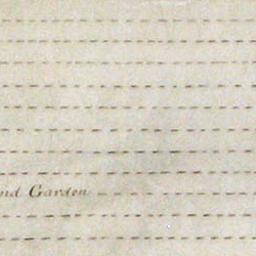 nd Garden